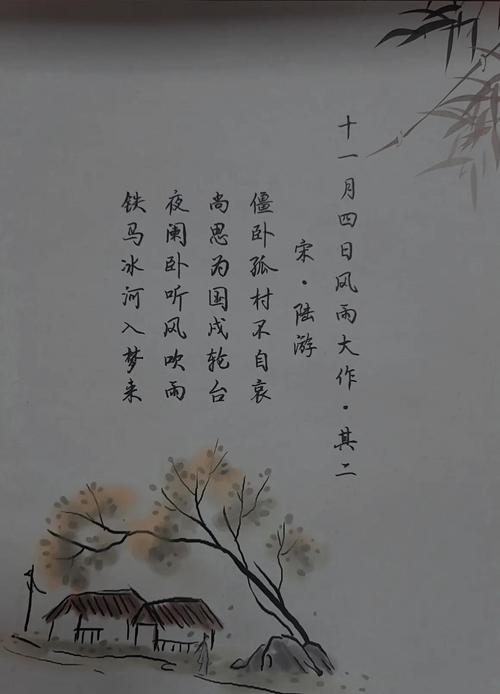 十一月四日风雨大作·其二
宋·陆游
僵卧孤村不自哀
尚思为国戍轮台
夜阑卧听风吹雨
铁马冰河入梦来